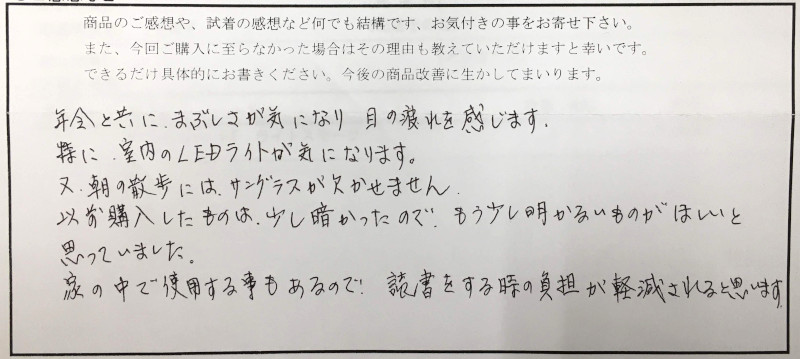 商品のご感想や、試着の感想など何でも結構です、お気付きの事をお寄せ下さい。
また、今回ご購入に至らなかった場合はその理由も教えていただけますと幸いです。
できるだけ具体的にお書きください。今後の商品改善に生かしてまいります。
年令と共に、まぶしさが気になり 目の疲れを感じます。
特に、室内のLEDライトが気になります。
又、朝の散歩には、サングラスが欠かせません。
以前購入したものは、少し暗かったので、もう少し明かるいものがほしいと
思っていました。
家の中で使用する事もあるので、読書をする時の負担が軽減されると思います